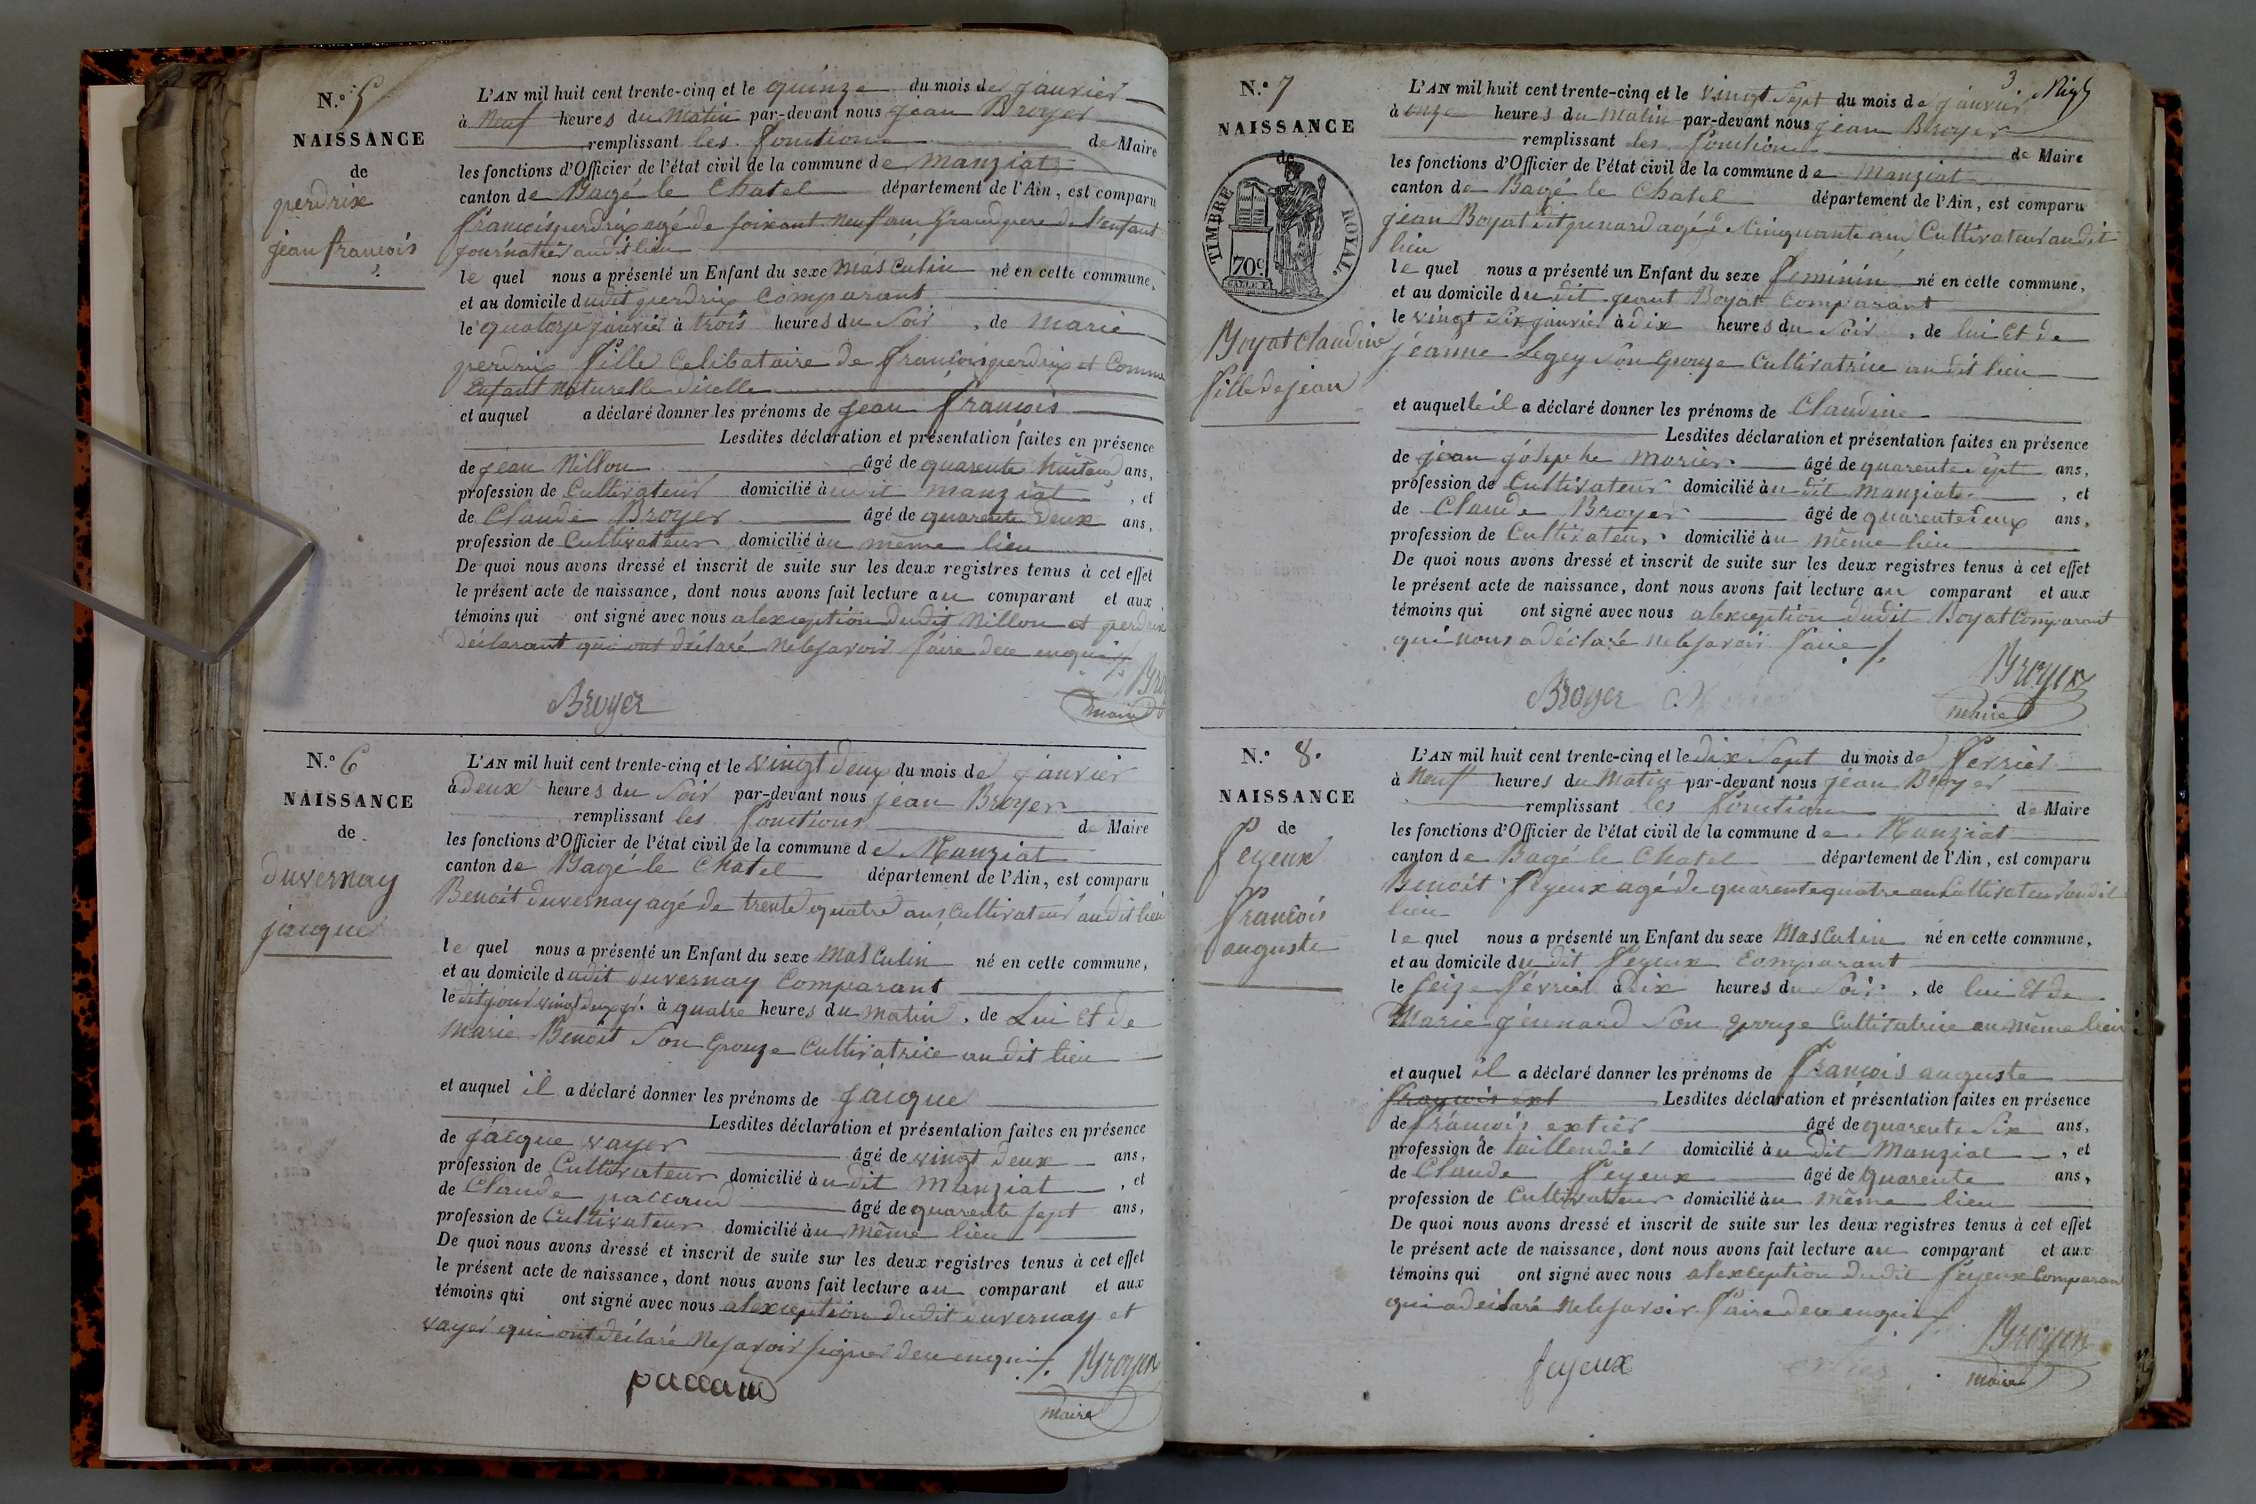 N.º 5
NAISSANCE
de
perdrix
jean françois
L'AN mil huit cent trente-cinq et le quinze du mois de janvier
à Neuf heures du Matin par-devant nous jean Broyer
remplissant les fonctions de Maire
les fonctions d'Officier de l'état civil de la commune de Manziat
canton de Bagé le Chatel département de l'Ain, est comparu
françois perdrix agé de soixant neuf ans grandpere de l'enfant
journallier audit lieu
le quel nous a présenté un Enfant du sexe Masculin né en cette commune,
et au domicile dudit perdrix Comparant
le quatorze janvier à trois heures du Soir, de Marie
perdrix fille Celibataire de françois perdrix et Comme
Enfant Naturelle dicelle
et auquel a déclaré donner les prénoms de jean françois
Lesdites déclaration et présentation faites en présence
de jean Nillon âgé de quarente huit ans,
profession de Cultivateur domicilié àudit Manziat, et
de Claude Broyer âgé de quarente deux ans,
profession de Cultivateur domicilié àu même lieu
De quoi nous avons dressé et inscrit de suite sur les deux registres tenus à cet effet
le présent acte de naissance, dont nous avons fait lecture au comparant et aux
témoins qui ont signé avec nous alexception dudit Nillon et perdrix
déclarant qui ont déclaré Nelesavoir faire dece enquis
Broyer
maire
N.º 6
NAISSANCE
de
duvernay
jacque
L'AN mil huit cent trente-cinq et le vingt deux du mois de janvier
à deux heures du Soir par-devant nous jean Broyer
remplissant les fonctions de Maire
les fonctions d'Officier de l'état civil de la commune de Manziat
canton de Bagé le Chatel département de l'Ain, est comparu
Benoit duvernay agé de trente quatre ans Cultivateur audit lieu
le quel nous a présenté un Enfant du sexe Masculin né en cette commune,
et au domicile dudit duvernay Comparant
le dit jour vingt deux jr. à quatre heures du matin, de Lui Et de
Marie Benoit Son Epouze Cultivatrice audit lieu
et auquel il a déclaré donner les prénoms de jacque
Lesdites déclaration et présentation faites en présence
de jacque vayer âgé de vingt deux ans,
profession de Cultivateur domicilié àudit Manziat, et
de Claude paccaud âgé de quarente sept ans,
profession de Cultivateur domicilié àu même lieu
De quoi nous avons dressé et inscrit de suite sur les deux registres tenus à cet effet
le présent acte de naissance, dont nous avons fait lecture au comparant et aux
témoins qui ont signé avec nous alexception dudit duvernay et
vayer qui ont déclaré Nesavoir signer dece enquis
Broyer
paccaud
maire
3
N.º 7
NAISSANCE
de
TIMBRE ROYAL.
70c
Boyat Claudine
fille de jean
L'AN mil huit cent trente-cinq et le vingt Sept du mois de janvier
à onze heures du Matin par-devant nous jean Broyer
remplissant les fonctions de Maire
les fonctions d'Officier de l'état civil de la commune de Manziat
canton de Bagé le Chatel département de l'Ain, est comparu
jean Boyat dit penard agé de Cinquante ans Cultivateur audit
lieu
le quel nous a présenté un Enfant du sexe feminin né en cette commune,
et au domicile dudit jeant Boyat Comparant
le vingt Six janvier à dix heures du Soir, de lui Et de
jeanne Legey Son Epouze Cultivatrice audit lieu
et auquelle il a déclaré donner les prénoms de Claudine
Lesdites déclaration et présentation faites en présence
de jean josephe Morier âgé de quarente Sept ans,
profession de Cultivateur domicilié àu dit Manziat, et
de Claude Broyer âgé de quarente deux ans,
profession de Cultivateur domicilié àu même lieu
De quoi nous avons dressé et inscrit de suite sur les deux registres tenus à cet effet
le présent acte de naissance, dont nous avons fait lecture au comparant et aux
témoins qui ont signé avec nous alexception dudit Boyat Comparant
qui nous a déclaré Nelesavoir faire
Broyer
Broyer
maire
N.º 8.
NAISSANCE
de
feyeux
françois
auguste
L'AN mil huit cent trente-cinq et le dix Sept du mois de fevrier
à Neuf heures du Matin par-devant nous jean Broyer
remplissant les fonctions de Maire
les fonctions d'Officier de l'état civil de la commune de Manziat
canton de Bagé le Chatel département de l'Ain, est comparu
Benoit feyeux agé de quarente quatre ans Cultivateur audit
lieu
le quel nous a présenté un Enfant du sexe Masculin né en cette commune,
et au domicile dudit feyeux Comparant
le Seize fevrier à dix heures du Soir, de lui Et de
Marie jeunard Son Epouze Cultivatrice au même lieu
et auquel il a déclaré donner les prénoms de françois auguste
françois ext Lesdites déclaration et présentation faites en présence
de françois extier âgé de quarente Six ans,
profession de taillendier domicilié àu dit Manziat, et
de Claude feyeux âgé de quarente ans,
profession de Cultivateur domicilié àu même lieu
De quoi nous avons dressé et inscrit de suite sur les deux registres tenus à cet effet
le présent acte de naissance, dont nous avons fait lecture au comparant et aux
témoins qui ont signé avec nous alexception dudit feyeux Comparan
qui a déclaré Nelesavoir faire dece enquis
Broyer
feyeux extier
maire